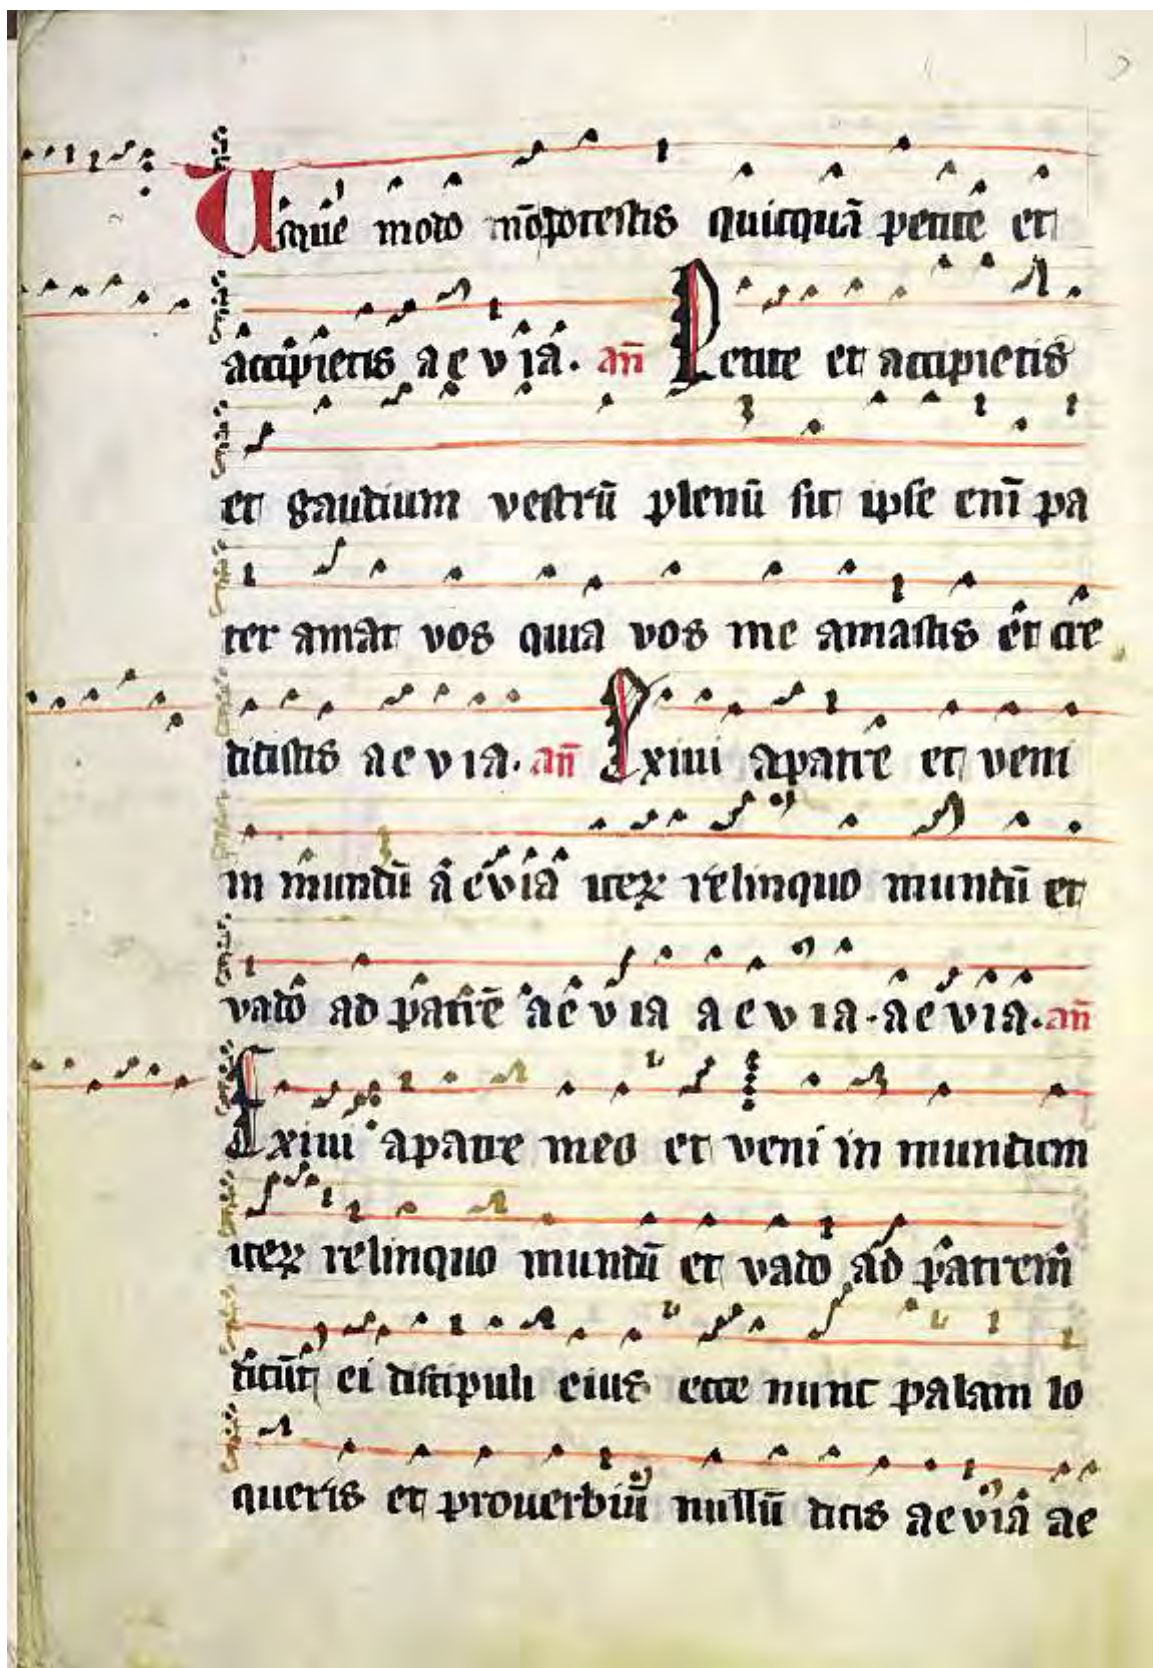 Usque modo nō potestis quicquā petite et
accipietis aevia. an̄ Petite et accipietis
et gaudium vestrū plenū sit ipse enī pa
ter amat vos quia vos me amastis et cre
didistis aevia. an̄ Exivi a patre et veni
in mundū aevia iteꝝ relinquo mundū et
vado ad patrē aevia aevia. aevia. an̄
Exivi a patre meo et veni in mundum
iteꝝ relinquo mundū et vado ad patrem
dicūt ei discipuli eius ecce nunc palam lo
queris et proverbiū nullū dicis aevia ae